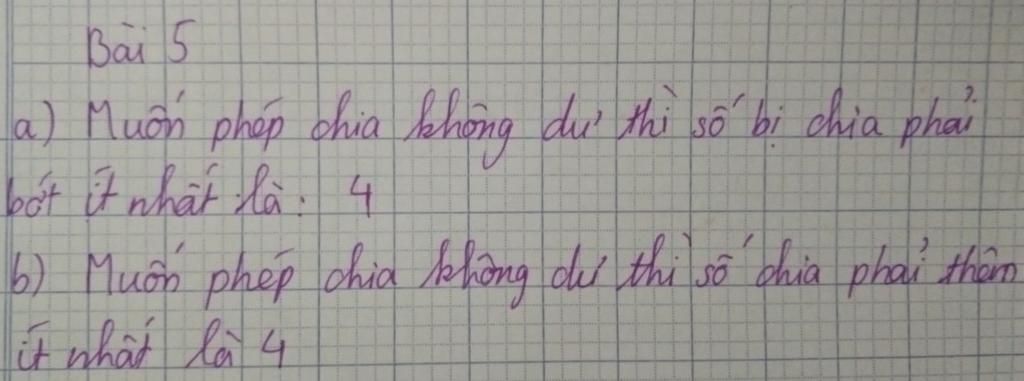 Bài 5
a) Muốn phép chia không dư thì số bị chia phải
bớt ít nhất là: 4
b) Muốn phép chia không dư thì số chia phải thêm
ít nhất là 4